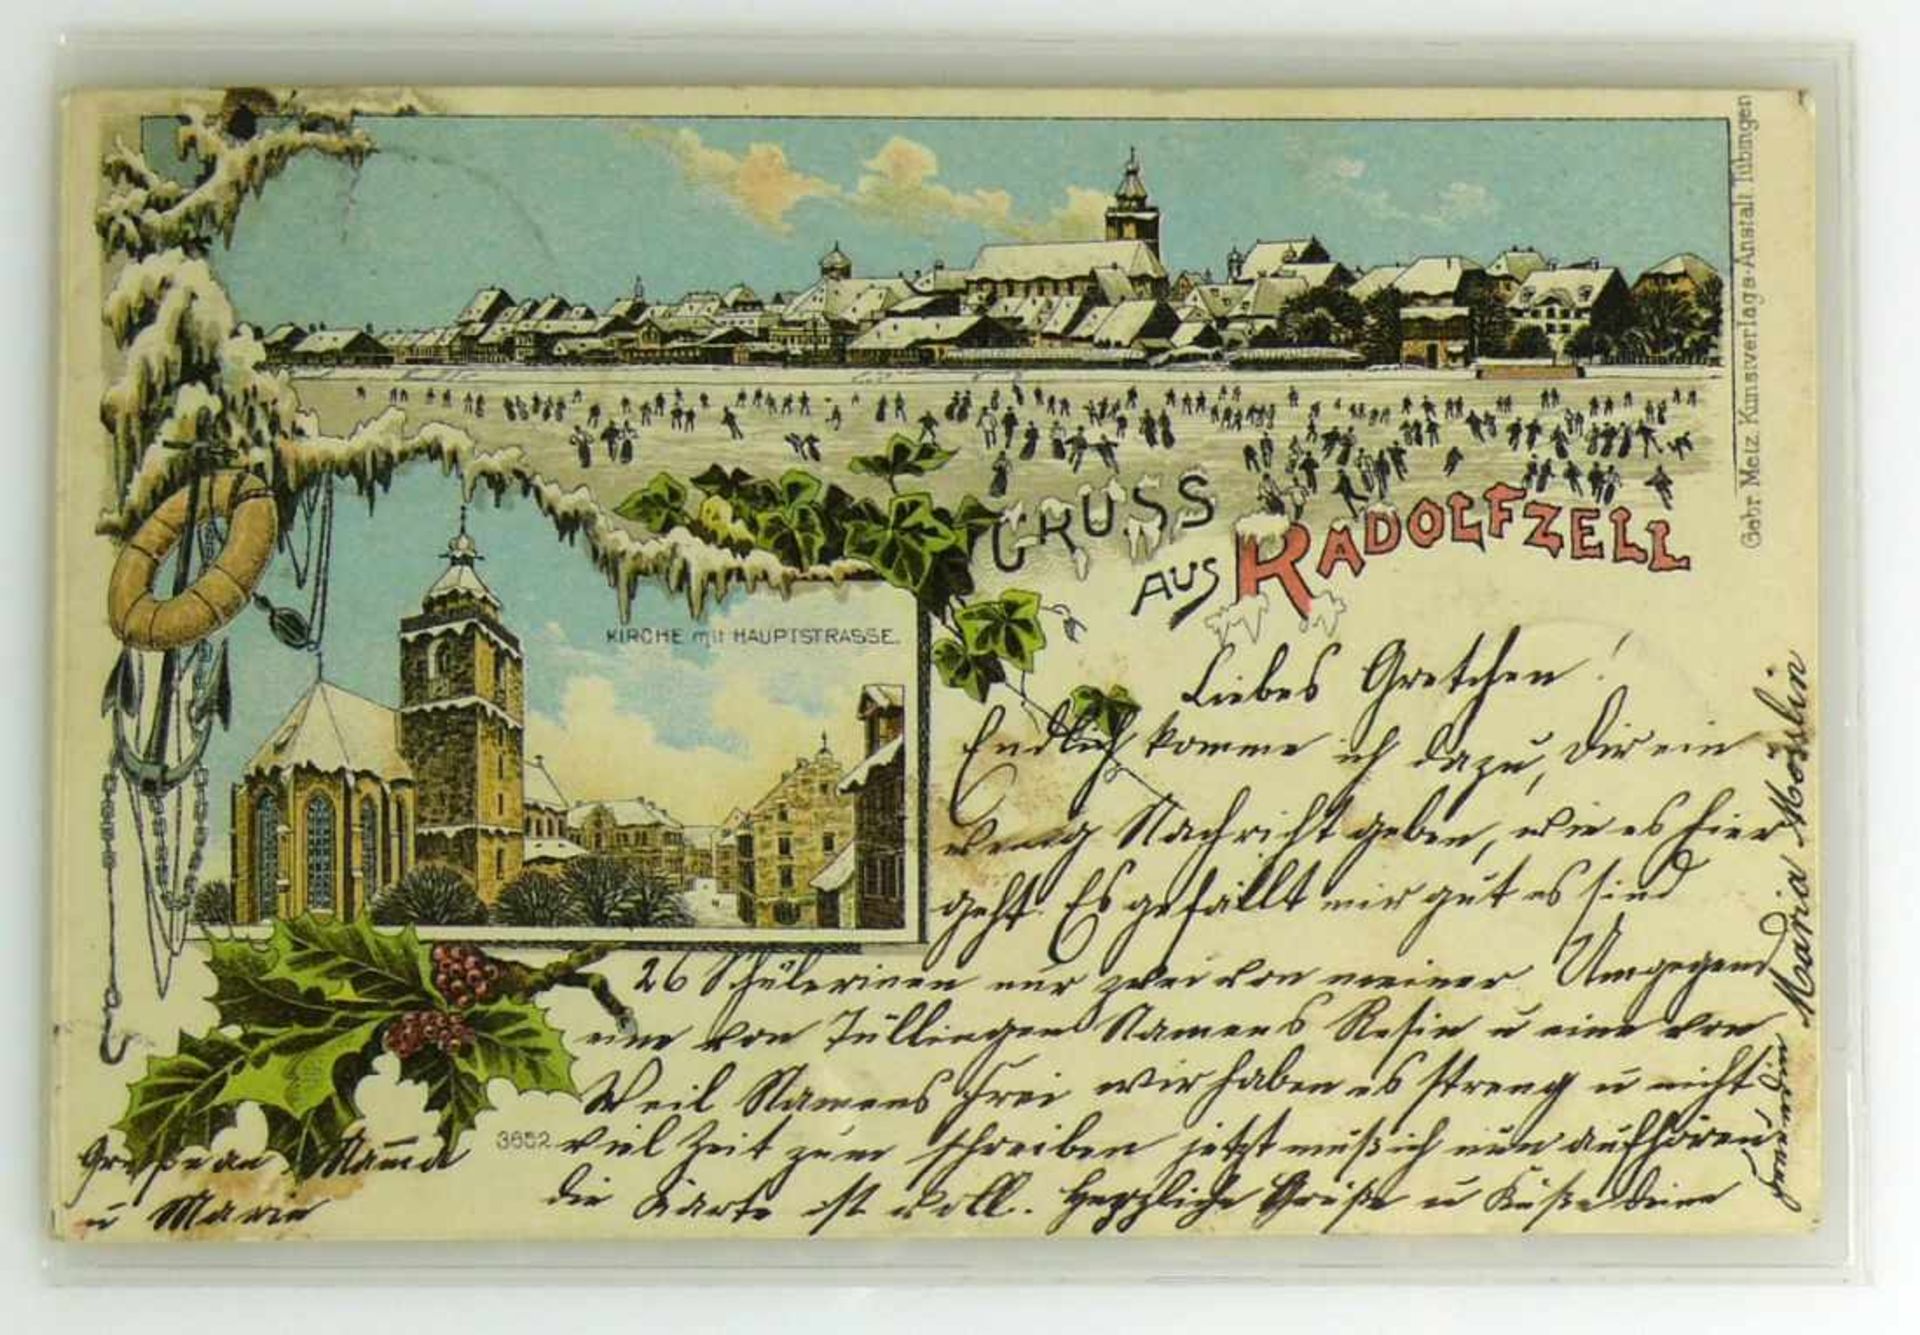 GRUSS
AUS RADOLFZELL
KIRCHE mit HAUPTSTRASSE.
Gebr. Metz Kunstverlags-Anstalt Tübingen
Liebes Gretchen!
Endlich komme ich dazu, Dir ein
wenig Nachricht geben, wie es hier
geht. Es gefällt mir gut es sind
26 Schülerinen nur zwei von meiner Umgegend
eine von Tüllingen Namens Resin u eine von
Weil Namens Frei wir haben es streng u nicht
viel Zeit zum schreiben jetzt muß ich nun aufhören
die Karte ist voll. Herzliche Grüße u Küße Deine
Freundin
Maria Mösslin
3652
Grüße an Mama
u Marie